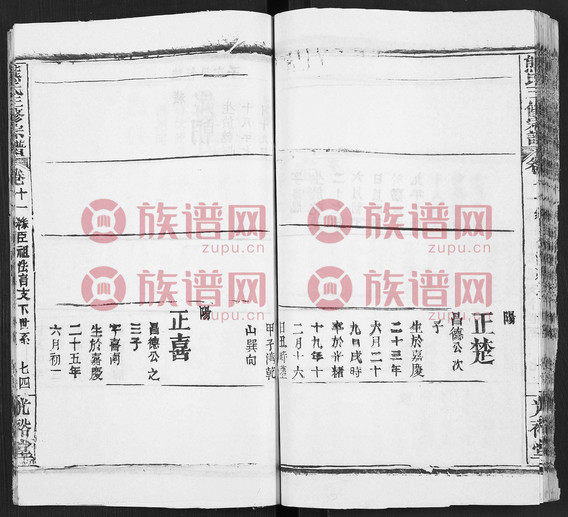 陽
正楚
昌德公次
子
生於嘉慶
二十三年
六月二十
九日戌時
卒於光緒
十九年十
二月十六
甲子濟乾
山巽向
陽
正喜
昌德公之
三子
字喜南
生於嘉慶
二十五年
六月初一
熊氏三修宗譜
卷十一
七四
光裕堂
熊氏三修宗譜
光裕堂
族谱网
zupu.cn
族谱网
zupu.cn
族谱网
zupu.cn
族谱网
zupu.cn